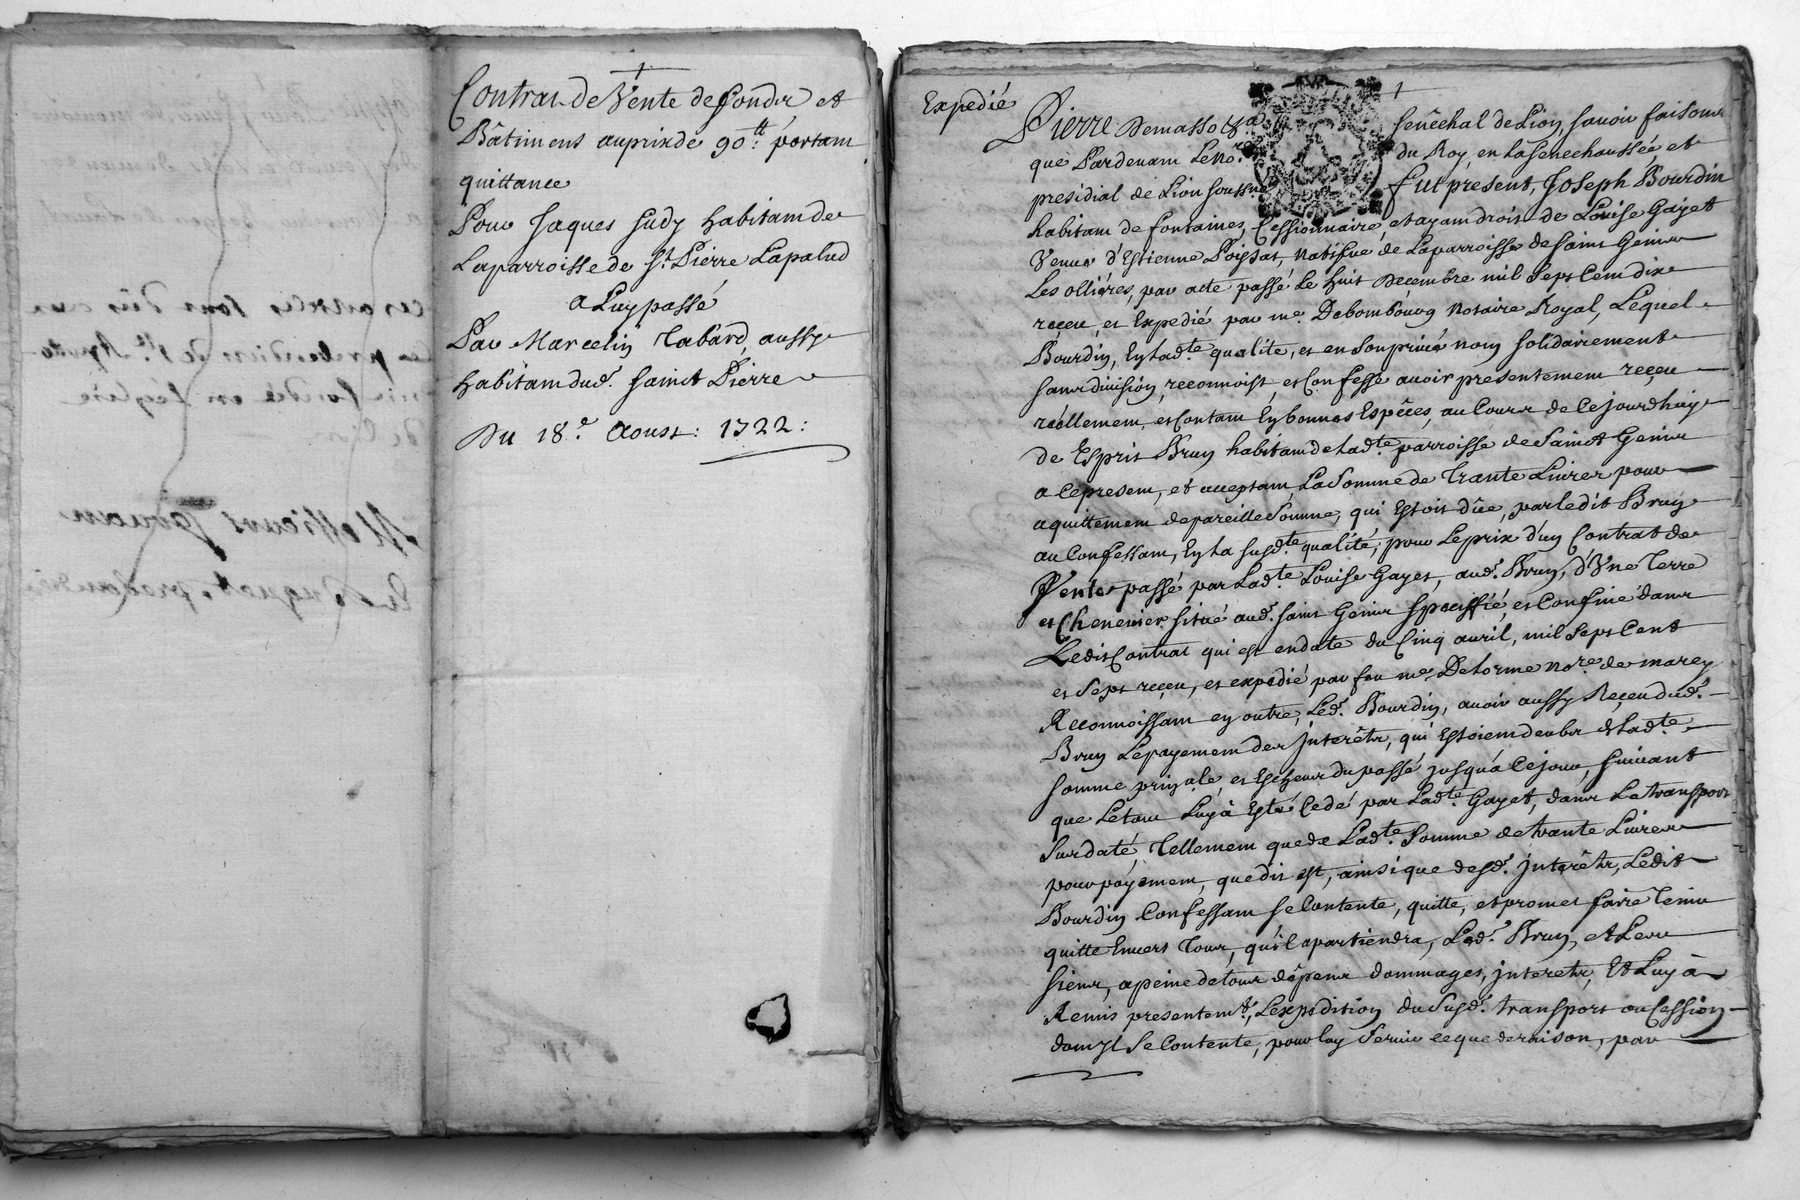 Contrat de Vente de fonds et
Bâtiments au prix de 90.tt portant
quittance
Pour Jaques Judy habitant de
Laparroisse de St. Pierre Lapalud
a Luy passé
Par Marcelin Tabard, aussy
habitant dud. Sainct Pierre
Du 18.e Aoust: 1722:
Expedié
Pierre Demasso
Senêchal de Lion, savoir faisons
que Pardevant Le No.re
du Roy, en la Senechaussée et
presidial de Lion soussné
fut present, Joseph Bourdin
habitant de fontaines, Cessionnaire, et ayant droit de Louise Gayet
Veuve d'Estienne Poissat, de Laparroisse de Saint Genis
Les ollières, par acte passé Le huit Decembre mil Sept Cent dix
receu, et Expedié par me. Debombourg Notaire Royal, Lequel
Bourdin, En lad.te qualité, et en son privé nom solidairement
sans division, reconnoist, et Confesse avoir presentement reçeu
réellement, et Contant En bonnes Espêces, au Cours de Cejourdhuy
de Esprit Brun habitant de Lad.te parroisse de Sainct Genis
a Cepresent, et acceptant, La Somme de Trante Livres pour
aquittement de pareille Somme, qui Estoit dûe, par ledit Brun
au Confessant, En la susd.te qualité, pour Le prix d'un Contrat de
Vente passé par Lad.te Louise Gayet, aud. Brun, d'Une Terre
et Chenevier situé aud. saint Genis spéciffié, et Confiné dans
Ledit Contrat qui est en date du Cinq avril, mil Sept Cent
et Sept reçeu, et expedié par feu me. Delorme No.re de marcy
Reconnoissant en outre, Led. Bourdin, avoir aussy Reçeu dud.
Brun Le payement des Interêts, qui Estoient deubs de Lad.te
somme prin.ale, et Escheus du passé jusquà Cejour, suivant
que Letout Luy à Esté Cedé, par Lad.te Gayet, dans Le transport
susdaté, Tellement que de Lad.te Somme de trante Livres
pour payement, que dit est, ainsi que desd. Interêts, Ledit
Bourdin Confessant se Contente, quitte, et promet faire Tenir
quitte Envers Tous, qu'il apartiendra, Led. Brun, et Les
siens, a peine de tous dêpens dommages, interets, Et Luy à
Remis presentem.t, Lexpedition du Susd. transport ou Cession
dont il Se Contente, pour luy Servir ce que de raison, par